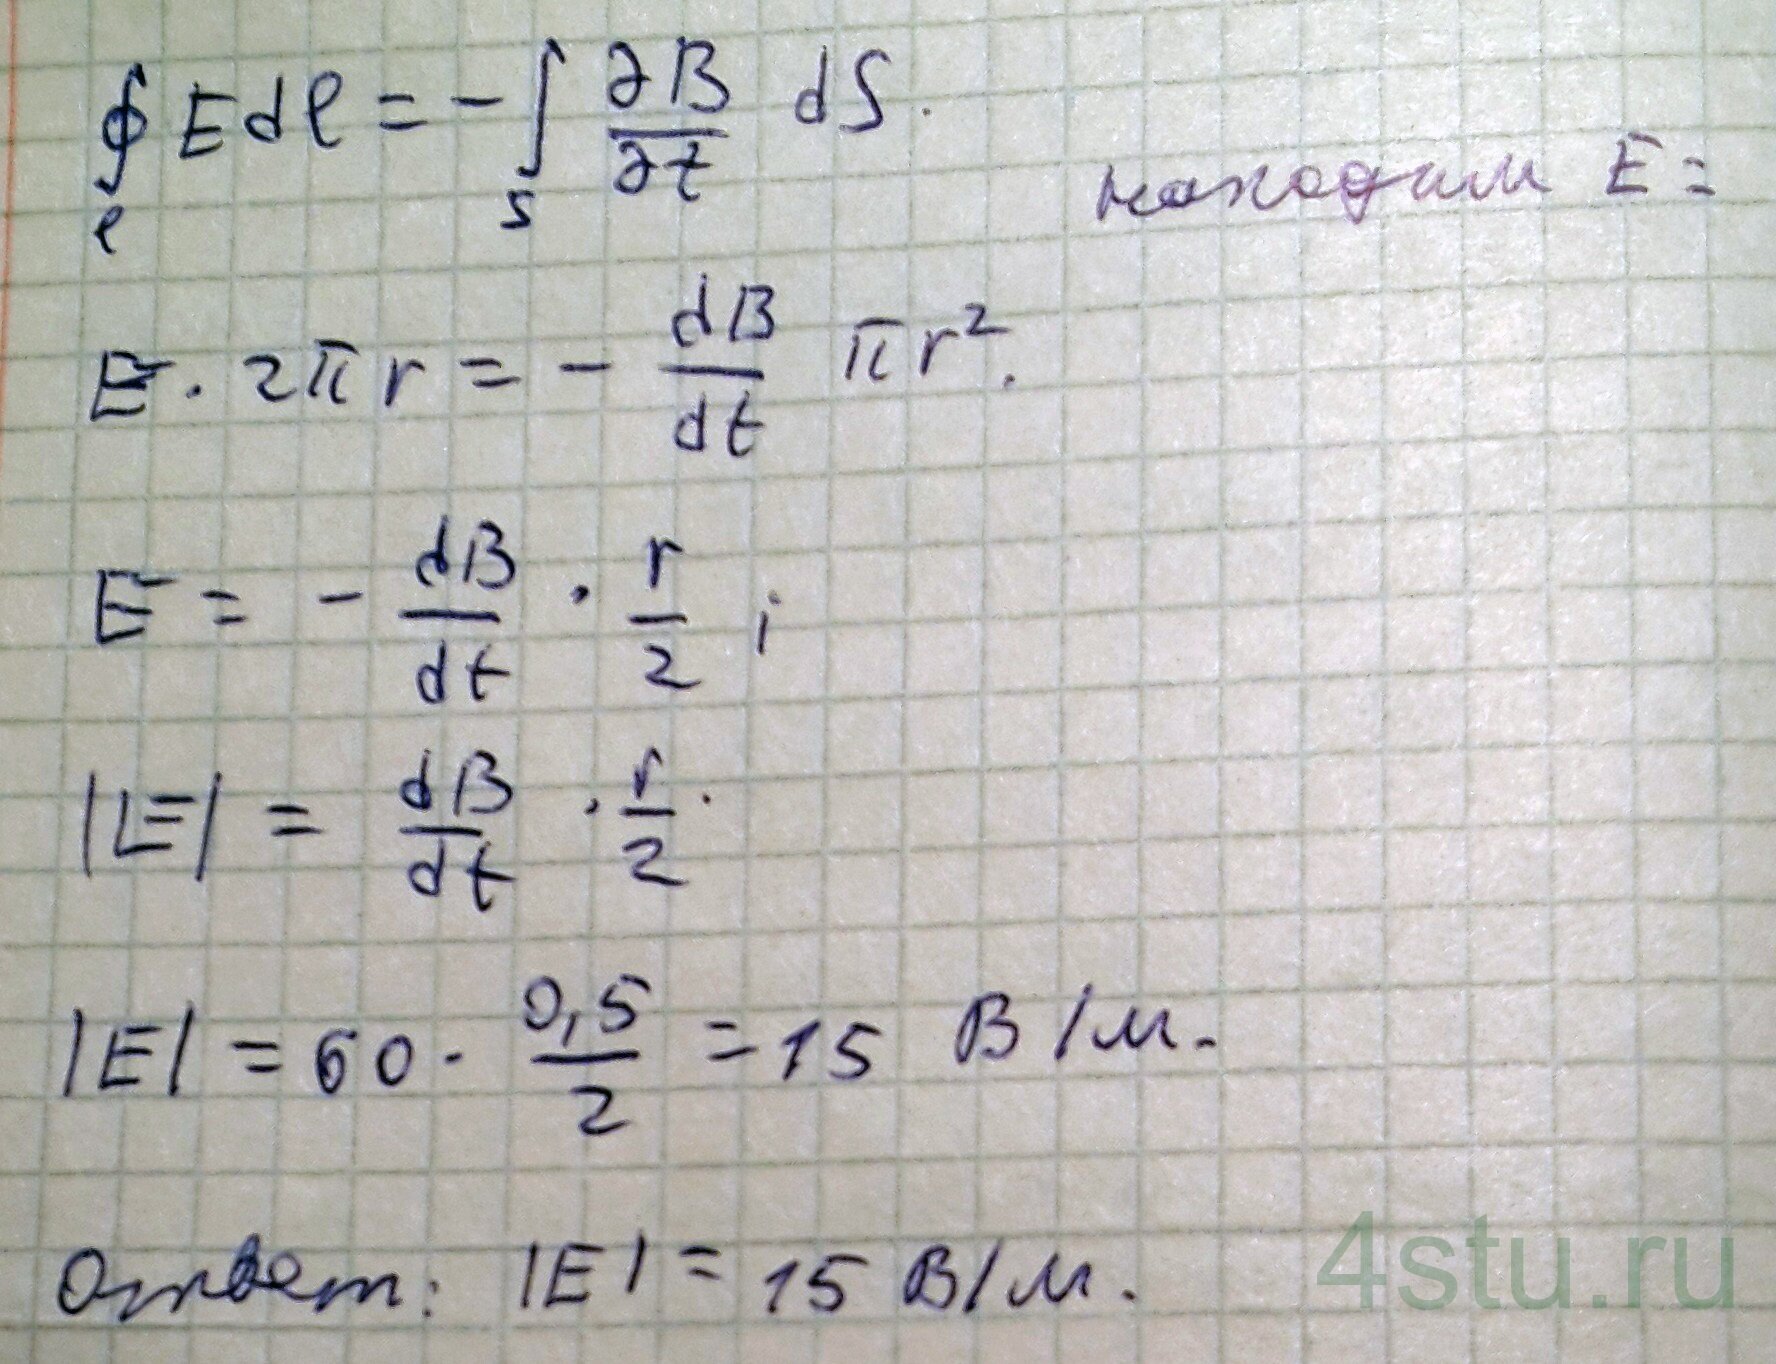 ∮ₗ E dℓ = - ∫ₛ ∂B/∂t dS.
находим E =
E · 2πr = - dB/dt πr².
E = - dB/dt · r/2 ;
|E| = dB/dt · r/2.
|E| = 60 · 0,5/2 = 15 В/м.
Ответ: |E| = 15 В/м.
4stu.ru